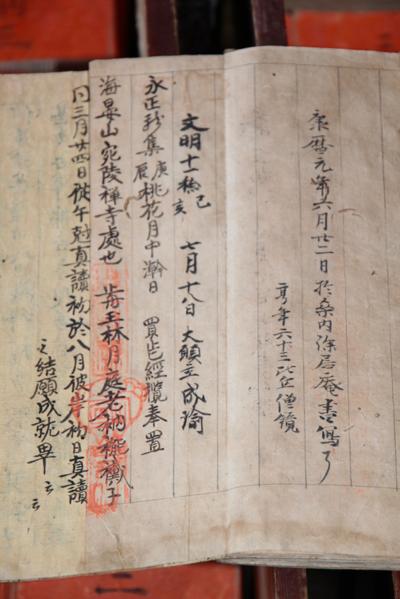 康暦元年六月廿二日於桑内除居庵書写了
享年六十三比丘僧鏡
文明十一稔己亥 七月十八日 大願主成瑜
永正 集庚辰桃花月中瀚日 買此經櫃奉置
海晏山宛陵禅寺處也 林月庭老衲 子
同三月廿四日従午尅真讀初於八月彼岸初日真讀
之結願成就畢云云